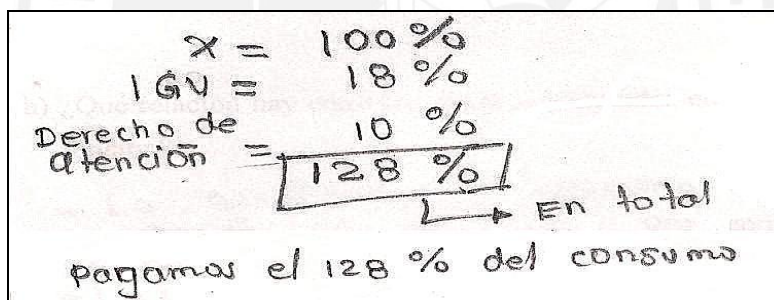 x = 100 %
IGV = 18 %
Derecho de
atención = 10 %
128 %
En total
pagamos el 128 % del consumo